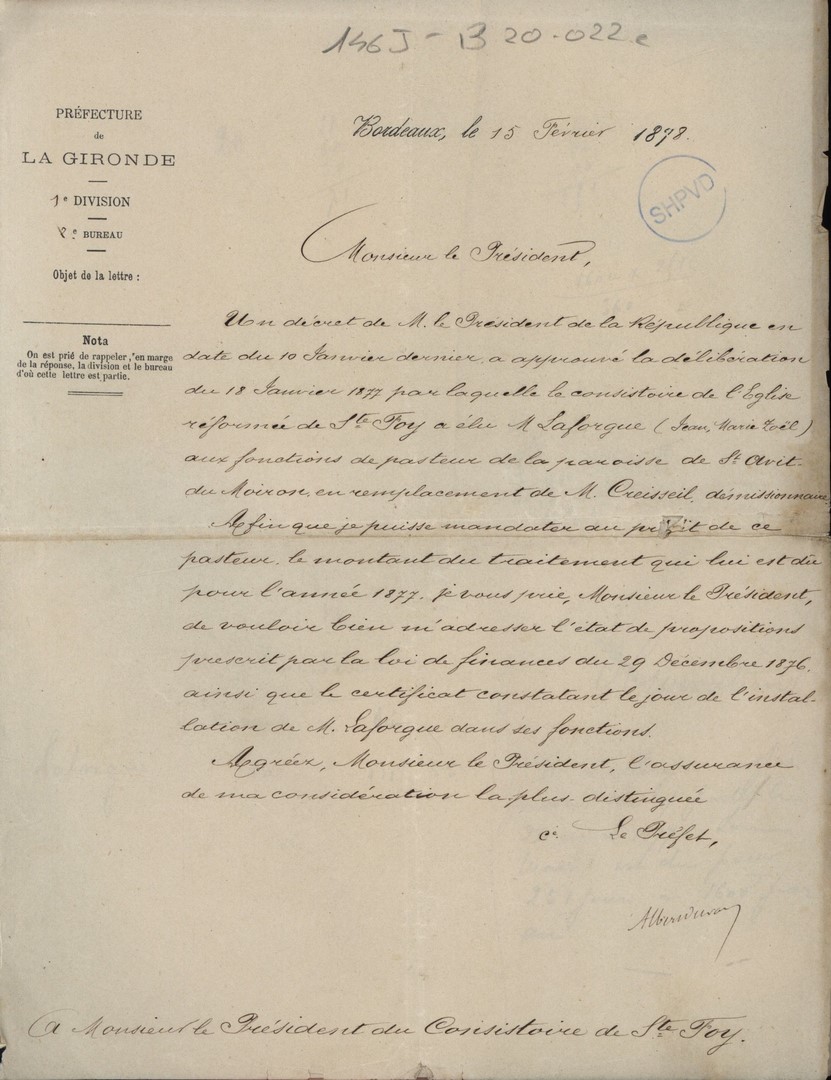 146 J - B 20-022e
PRÉFECTURE
de
LA GIRONDE
1e DIVISION
2e BUREAU
Objet de la lettre :
Nota
On est prié de rappeler, en marge
de la réponse, la division et le bureau
d'où cette lettre est partie.
Bordeaux, le 15 Février 1878.
SHPVD
Monsieur le Président,
Un décret de M. le Président de la République en
date du 10 Janvier dernier, a approuvé la délibération
du 18 Janvier 1877 par laquelle le consistoire de l'Eglise
réformée de Ste Foy a élu M Laforgue (Jean, Marie Zoël)
aux fonctions de pasteur de la paroisse de St Avit-
du Moiron, en remplacement de M. Creisseil, démissionnaire
Afin que je puisse mandater au profit de ce
pasteur, le montant du traitement qui lui est dû
pour l'année 1877, je vous prie, Monsieur le Président,
de vouloir bien m'adresser l'état de propositions
prescrit par la loi de finances du 29 Décembre 1876,
ainsi que le certificat constatant le jour de l'instal-
lation de M. Laforgue dans ses fonctions.
Agréez, Monsieur le Président, l'assurance
de ma considération la plus distinguée
Le Préfet,
A Monsieur le Président du Consistoire de Ste Foy.